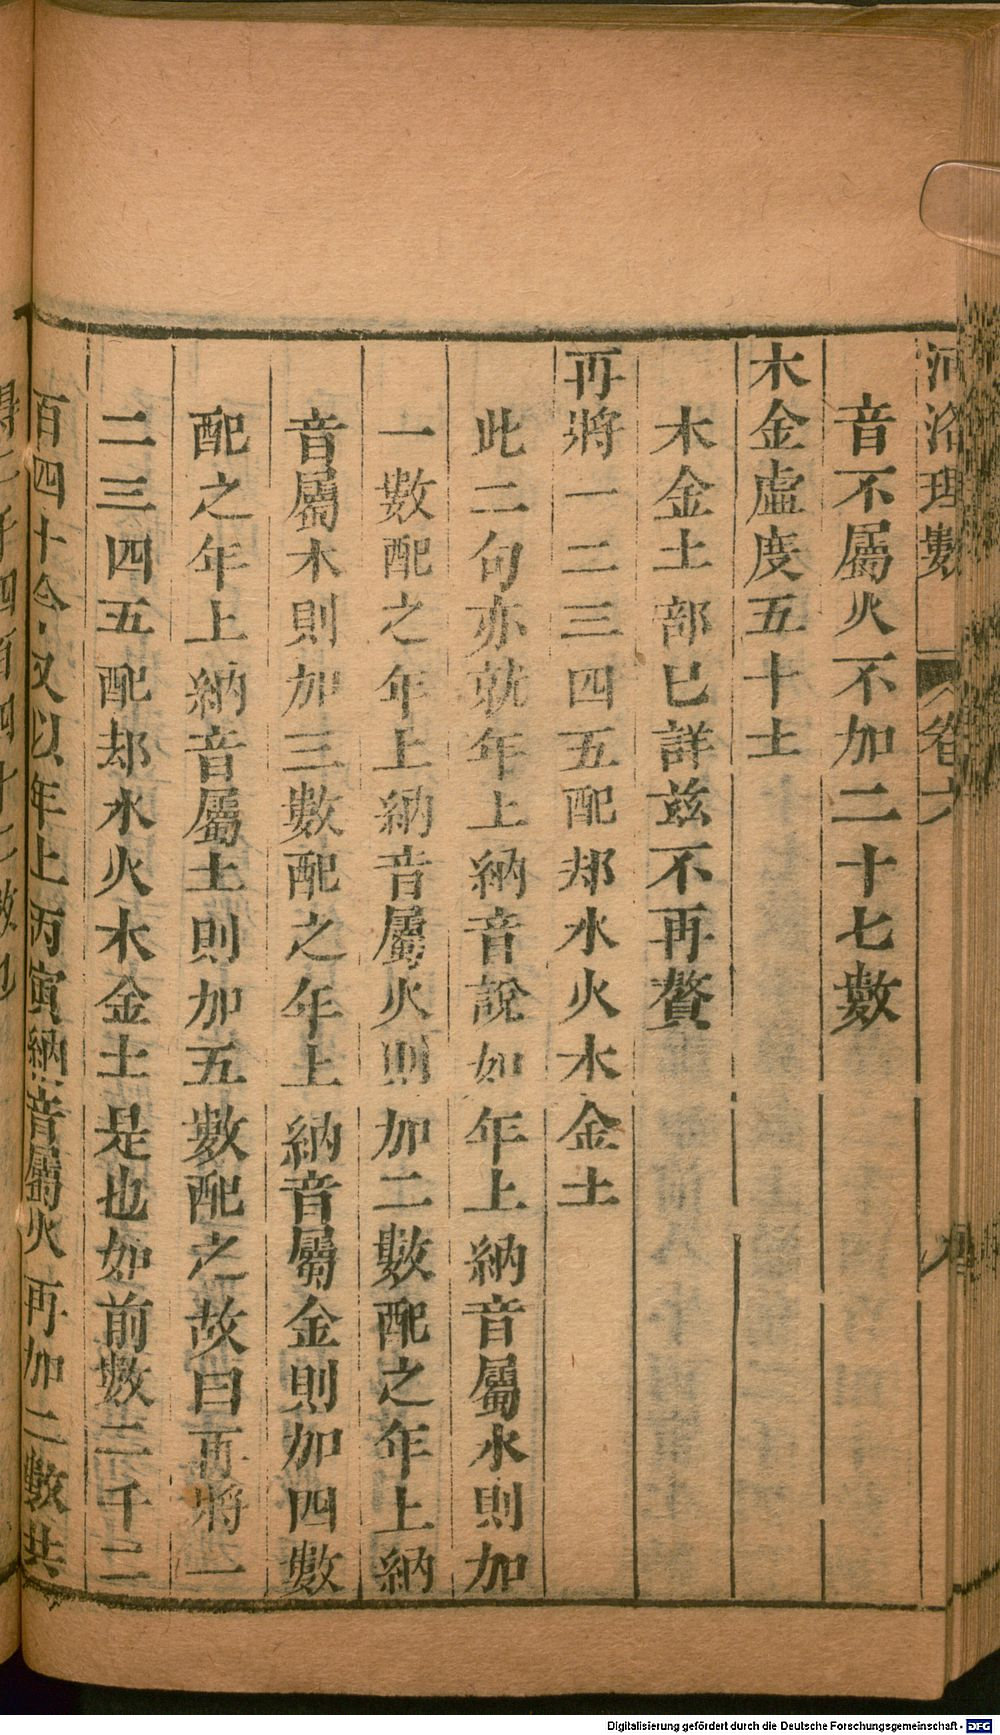 河洛理數 卷六
音不屬火不加二十七數
木金虛度五十土
木金土部已詳茲不再贅
再將一二三四五配却水火木金土
此二句亦就年上納音說如年上納音屬水則加
一數配之年上納音屬火則加二數配之年上納
音屬木則加三數配之年上納音屬金則加四數
配之年上納音屬土則加五數配之故曰再將一
二三四五配却水火木金土是也如前數二千二
百四十令又以年上丙寅納音屬火再加二數共
Digitalisierung gefördert durch die Deutsche Forschungsgemeinschaft - DFG